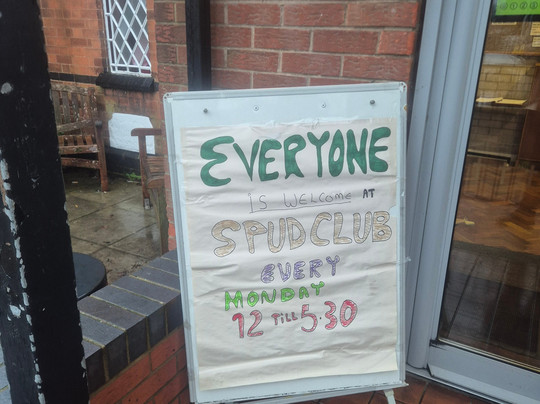 EVERYONE
IS WELCOME AT
SPUD CLUB
EVERY
MONDAY
12 Till 5.30